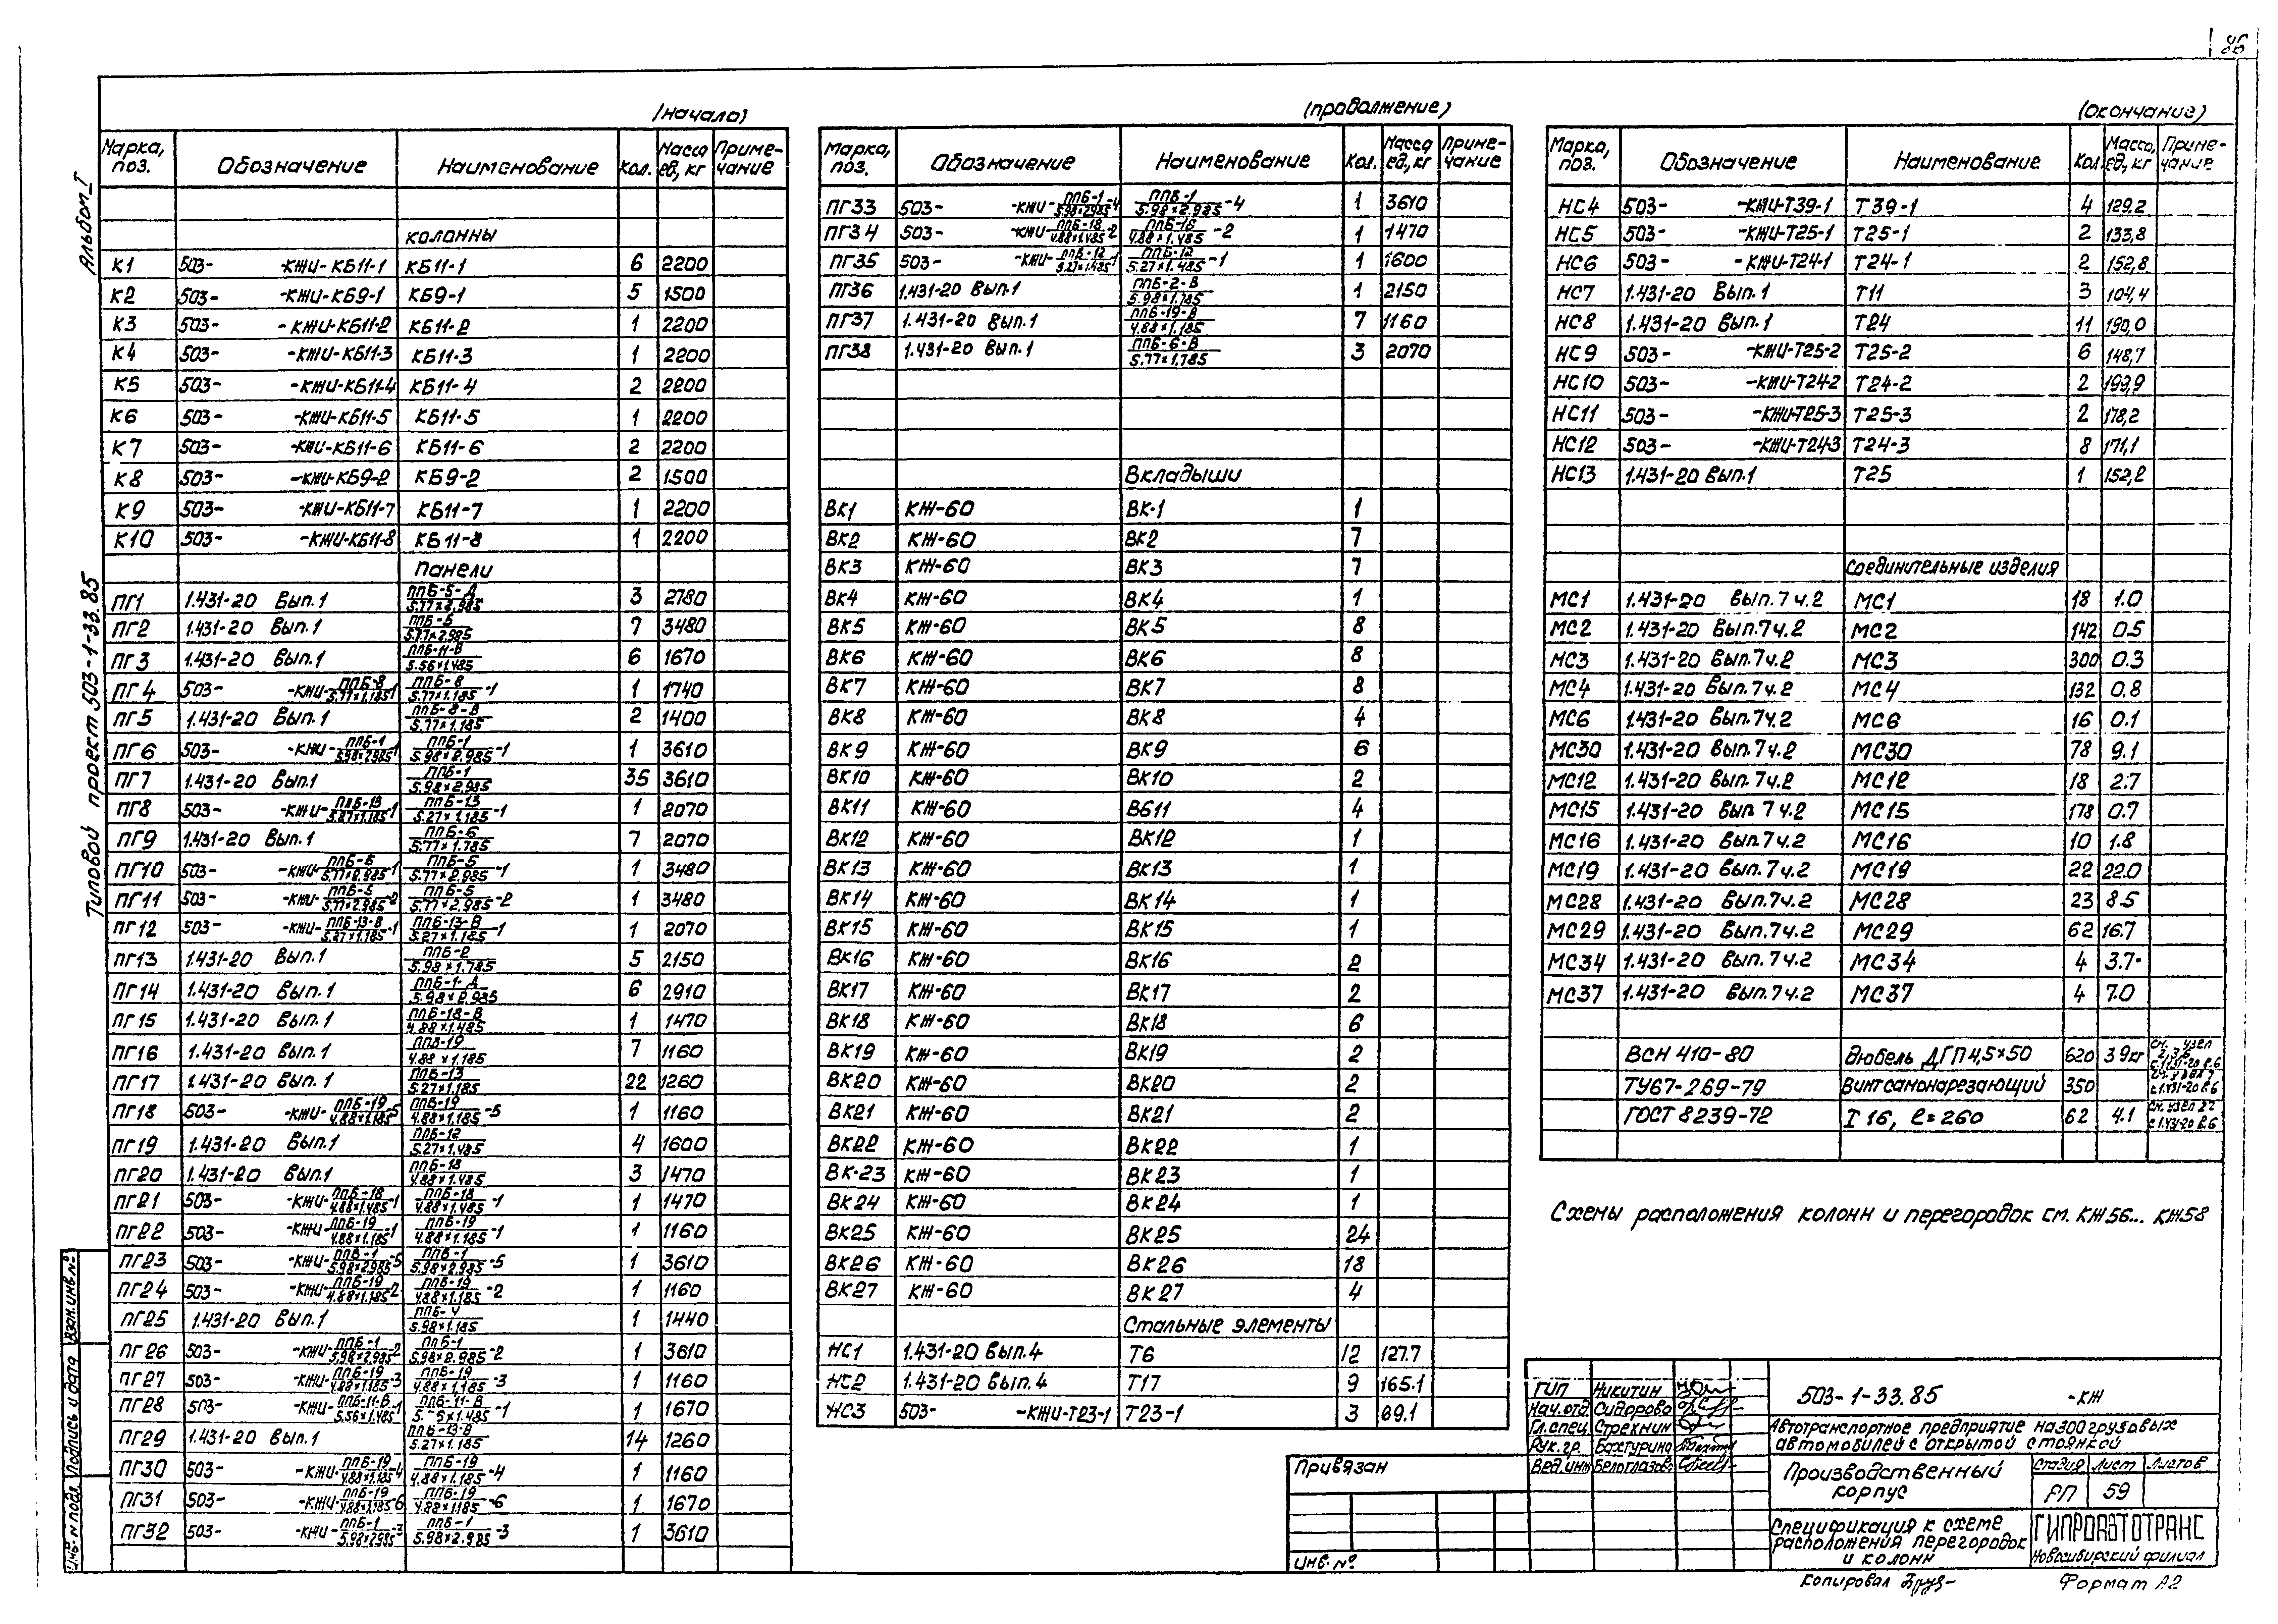 86
Альбом I
Типовой проект 503-1-33.85
(начало)
Марка, поз. Обозначение Наименование Кол. Масса ед, кг Приме-чание
колонны
К1 503- -КЖИ-КБ11-1 КБ11-1 6 2200
К2 503- -КЖИ-КБ9-1 КБ9-1 5 1500
К3 503- -КЖИ-КБ11-2 КБ11-2 1 2200
К4 503- -КЖИ-КБ11-3 КБ11-3 1 2200
К5 503- -КЖИ-КБ11-4 КБ11-4 2 2200
К6 503- -КЖИ-КБ11-5 КБ11-5 1 2200
К7 503- -КЖИ-КБ11-6 КБ11-6 2 2200
К8 503- -КЖИ-КБ9-2 КБ9-2 2 1500
К9 503- -КЖИ-КБ11-7 КБ11-7 1 2200
К10 503- -КЖИ-КБ11-8 КБ11-8 1 2200
Панели
ПГ1 1.431-20 Вып.1 ППБ-5-Д/5.77×2.985 3 2780
ПГ2 1.431-20 Вып.1 ППБ-5/5.77×2.985 7 3480
ПГ3 1.431-20 Вып.1 ППБ-11-В/5.56×1.485 6 1670
ПГ4 503- -КЖИ-ППБ-8/5.77×1.185-1 ППБ-8/5.77×1.185-1 1 1740
ПГ5 1.431-20 Вып.1 ППБ-8-В/5.77×1.185 2 1400
ПГ6 503- -КЖИ-ППБ-1/5.98×2.985-1 ППБ-1/5.98×2.985-1 1 3610
ПГ7 1.431-20 Вып.1 ППБ-1/5.98×2.985 35 3610
ПГ8 503- -КЖИ-ППБ-13/5.27×1.185-1 ППБ-13/5.27×1.185-1 1 2070
ПГ9 1.431-20 Вып.1 ППБ-6/5.77×1.785 7 2070
ПГ10 503- -КЖИ-ППБ-5/5.77×2.985-1 ППБ-5/5.77×2.985-1 1 3480
ПГ11 503- -КЖИ-ППБ-5/5.77×2.985-2 ППБ-5/5.77×2.985-2 1 3480
ПГ12 503- -КЖИ-ППБ-13-В/5.27×1.185-1 ППБ-13-В/5.27×1.185-1 1 2070
ПГ13 1.431-20 Вып.1 ППБ-2/5.98×1.785 5 2150
ПГ14 1.431-20 Вып.1 ППБ-1-Д/5.98×2.985 6 2910
ПГ15 1.431-20 Вып.1 ППБ-18-В/4.88×1.485 1 1470
ПГ16 1.431-20 Вып.1 ППБ-19/4.88×1.185 7 1160
ПГ17 1.431-20 Вып.1 ППБ-13/5.27×1.185 22 1260
ПГ18 503- -КЖИ-ППБ-19/4.88×1.185-5 ППБ-19/4.88×1.185-5 1 1160
ПГ19 1.431-20 Вып.1 ППБ-12/5.27×1.485 4 1600
ПГ20 1.431-20 Вып.1 ППБ-18/4.88×1.485 3 1470
ПГ21 503- -КЖИ-ППБ-18/4.88×1.485-1 ППБ-18/4.88×1.485-1 1 1470
ПГ22 503- -КЖИ-ППБ-19/4.88×1.185-1 ППБ-19/4.88×1.185-1 1 1160
ПГ23 503- -КЖИ-ППБ-1/5.98×2.985-5 ППБ-1/5.98×2.985-5 1 3610
ПГ24 503- -КЖИ-ППБ-19/4.88×1.185-2 ППБ-19/4.88×1.185-2 1 1160
ПГ25 1.431-20 Вып.1 ППБ-4/5.98×1.185 1 1440
ПГ26 503- -КЖИ-ППБ-1/5.98×2.985-2 ППБ-1/5.98×2.985-2 1 3610
ПГ27 503- -КЖИ-ППБ-19/4.88×1.185-3 ППБ-19/4.88×1.185-3 1 1160
ПГ28 503- -КЖИ-ППБ-11-В/5.56×1.485-1 ППБ-11-В/5.56×1.485-1 1 1670
ПГ29 1.431-20 Вып.1 ППБ-13-В/5.27×1.185 14 1260
ПГ30 503- -КЖИ-ППБ-19/4.88×1.185-4 ППБ-19/4.88×1.185-4 1 1160
ПГ31 503- -КЖИ-ППБ-19/4.88×1.185-6 ППБ-19/4.88×1.185-6 1 1670
ПГ32 503- -КЖИ-ППБ-1/5.98×2.985-3 ППБ-1/5.98×2.985-3 1 3610
(продолжение)
Марка, поз. Обозначение Наименование Кол. Масса ед, кг Приме-чание
ПГ33 503- -КЖИ-ППБ-1/5.98×2.985-4 ППБ-1/5.98×2.985-4 1 3610
ПГ34 503- -КЖИ-ППБ-18/4.88×1.485-2 ППБ-18/4.88×1.485-2 1 1470
ПГ35 503- -КЖИ-ППБ-12/5.27×1.485-1 ППБ-12/5.27×1.485-1 1 1600
ПГ36 1.431-20 Вып.1 ППБ-2-В/5.98×1.785 1 2150
ПГ37 1.431-20 Вып.1 ППБ-19-В/4.88×1.185 7 1160
ПГ38 1.431-20 Вып.1 ППБ-6-В/5.77×1.785 3 2070
Вкладыши
ВК1 КЖ-60 ВК-1 1
ВК2 КЖ-60 ВК2 7
ВК3 КЖ-60 ВК3 7
ВК4 КЖ-60 ВК4 1
ВК5 КЖ-60 ВК5 8
ВК6 КЖ-60 ВК6 8
ВК7 КЖ-60 ВК7 8
ВК8 КЖ-60 ВК8 4
ВК9 КЖ-60 ВК9 6
ВК10 КЖ-60 ВК10 2
ВК11 КЖ-60 ВБ11 4
ВК12 КЖ-60 ВК12 1
ВК13 КЖ-60 ВК13 1
ВК14 КЖ-60 ВК14 1
ВК15 КЖ-60 ВК15 1
ВК16 КЖ-60 ВК16 2
ВК17 КЖ-60 ВК17 2
ВК18 КЖ-60 ВК18 6
ВК19 КЖ-60 ВК19 2
ВК20 КЖ-60 ВК20 2
ВК21 КЖ-60 ВК21 2
ВК22 КЖ-60 ВК22 1
ВК-23 КЖ-60 ВК23 1
ВК24 КЖ-60 ВК24 1
ВК25 КЖ-60 ВК25 24
ВК26 КЖ-60 ВК26 18
ВК27 КЖ-60 ВК27 4
Стальные элементы
НС1 1.431-20 Вып.4 Т6 12 127.7
НС2 1.431-20 Вып.4 Т17 9 165.1
НС3 503- -КЖИ-Т23-1 Т23-1 3 69.1
(окончание)
Марка, поз. Обозначение Наименование Кол. Масса, ед, кг Приме-чание
НС4 503- -КЖИ-Т39-1 Т39-1 4 129.2
НС5 503- -КЖИ-Т25-1 Т25-1 2 133,8
НС6 503- -КЖИ-Т24-1 Т24-1 2 152,8
НС7 1.431-20 Вып.1 Т11 3 104,4
НС8 1.431-20 Вып.1 Т24 11 190,0
НС9 503- -КЖИ-Т25-2 Т25-2 6 148,7
НС10 503- -КЖИ-Т24-2 Т24-2 2 199,9
НС11 503- -КЖИ-Т25-3 Т25-3 2 178,2
НС12 503- -КЖИ-Т24-3 Т24-3 8 171,1
НС13 1.431-20 Вып.1 Т25 1 152,2
Соединительные изделия
МС1 1.431-20 Вып.7 ч.2 МС1 18 1.0
МС2 1.431-20 Вып.7ч.2 МС2 142 0.5
МС3 1.431-20 Вып.7ч.2 МС3 300 0.3
МС4 1.431-20 Вып.7ч.2 МС4 132 0.8
МС6 1.431-20 Вып.7ч.2 МС6 16 0.1
МС30 1.431-20 Вып.7ч.2 МС30 78 9.1
МС12 1.431-20 Вып.7ч.2 МС12 18 2.7
МС15 1.431-20 Вып 7ч.2 МС15 178 0.7
МС16 1.431-20 Вып.7ч.2 МС16 10 1.8
МС19 1.431-20 Вып.7ч.2 МС19 22 22.0
МС28 1.431-20 Вып.7ч.2 МС28 23 8.5
МС29 1.431-20 Вып.7ч.2 МС29 62 16.7
МС34 1.431-20 Вып.7ч.2 МС34 4 3.7
МС37 1.431-20 Вып.7ч.2 МС37 4 7.0
ВСН 410-80 Дюбель ДГП 4,5×50 620 3 9кг см. узел с 1.431-20 в.6
ТУ67-269-79 Винт самонарезающий 350 см. узел 7 с 1.431-20 в.6
ГОСТ 8239-72 I 16, ℓ=260 62 4.1 см. узел 22 с 1.431-20 в.6
Схемы расположения колонн и перегородок см. КЖ56... КЖ58
ГИП Никитин
Нач.отд Сидорова
Гл.спец. Стрехнин
Рук.гр. Бахтурина
Вед.инж Белоглазова
503-1-33.85 -КЖ
Автотранспортное предприятие на 300 грузовых
автомобилей с открытой стоянкой
Производственный корпус
Стадия Лист Листов
РП 59
Спецификация к схеме
расположения перегородок
и колонн
ГИПРОАВТОТРАНС
Новосибирский филиал
Привязан
Инв.№
Инв.№ подл. Подпись и дата Взам.инв.№
Копировал
Формат А2